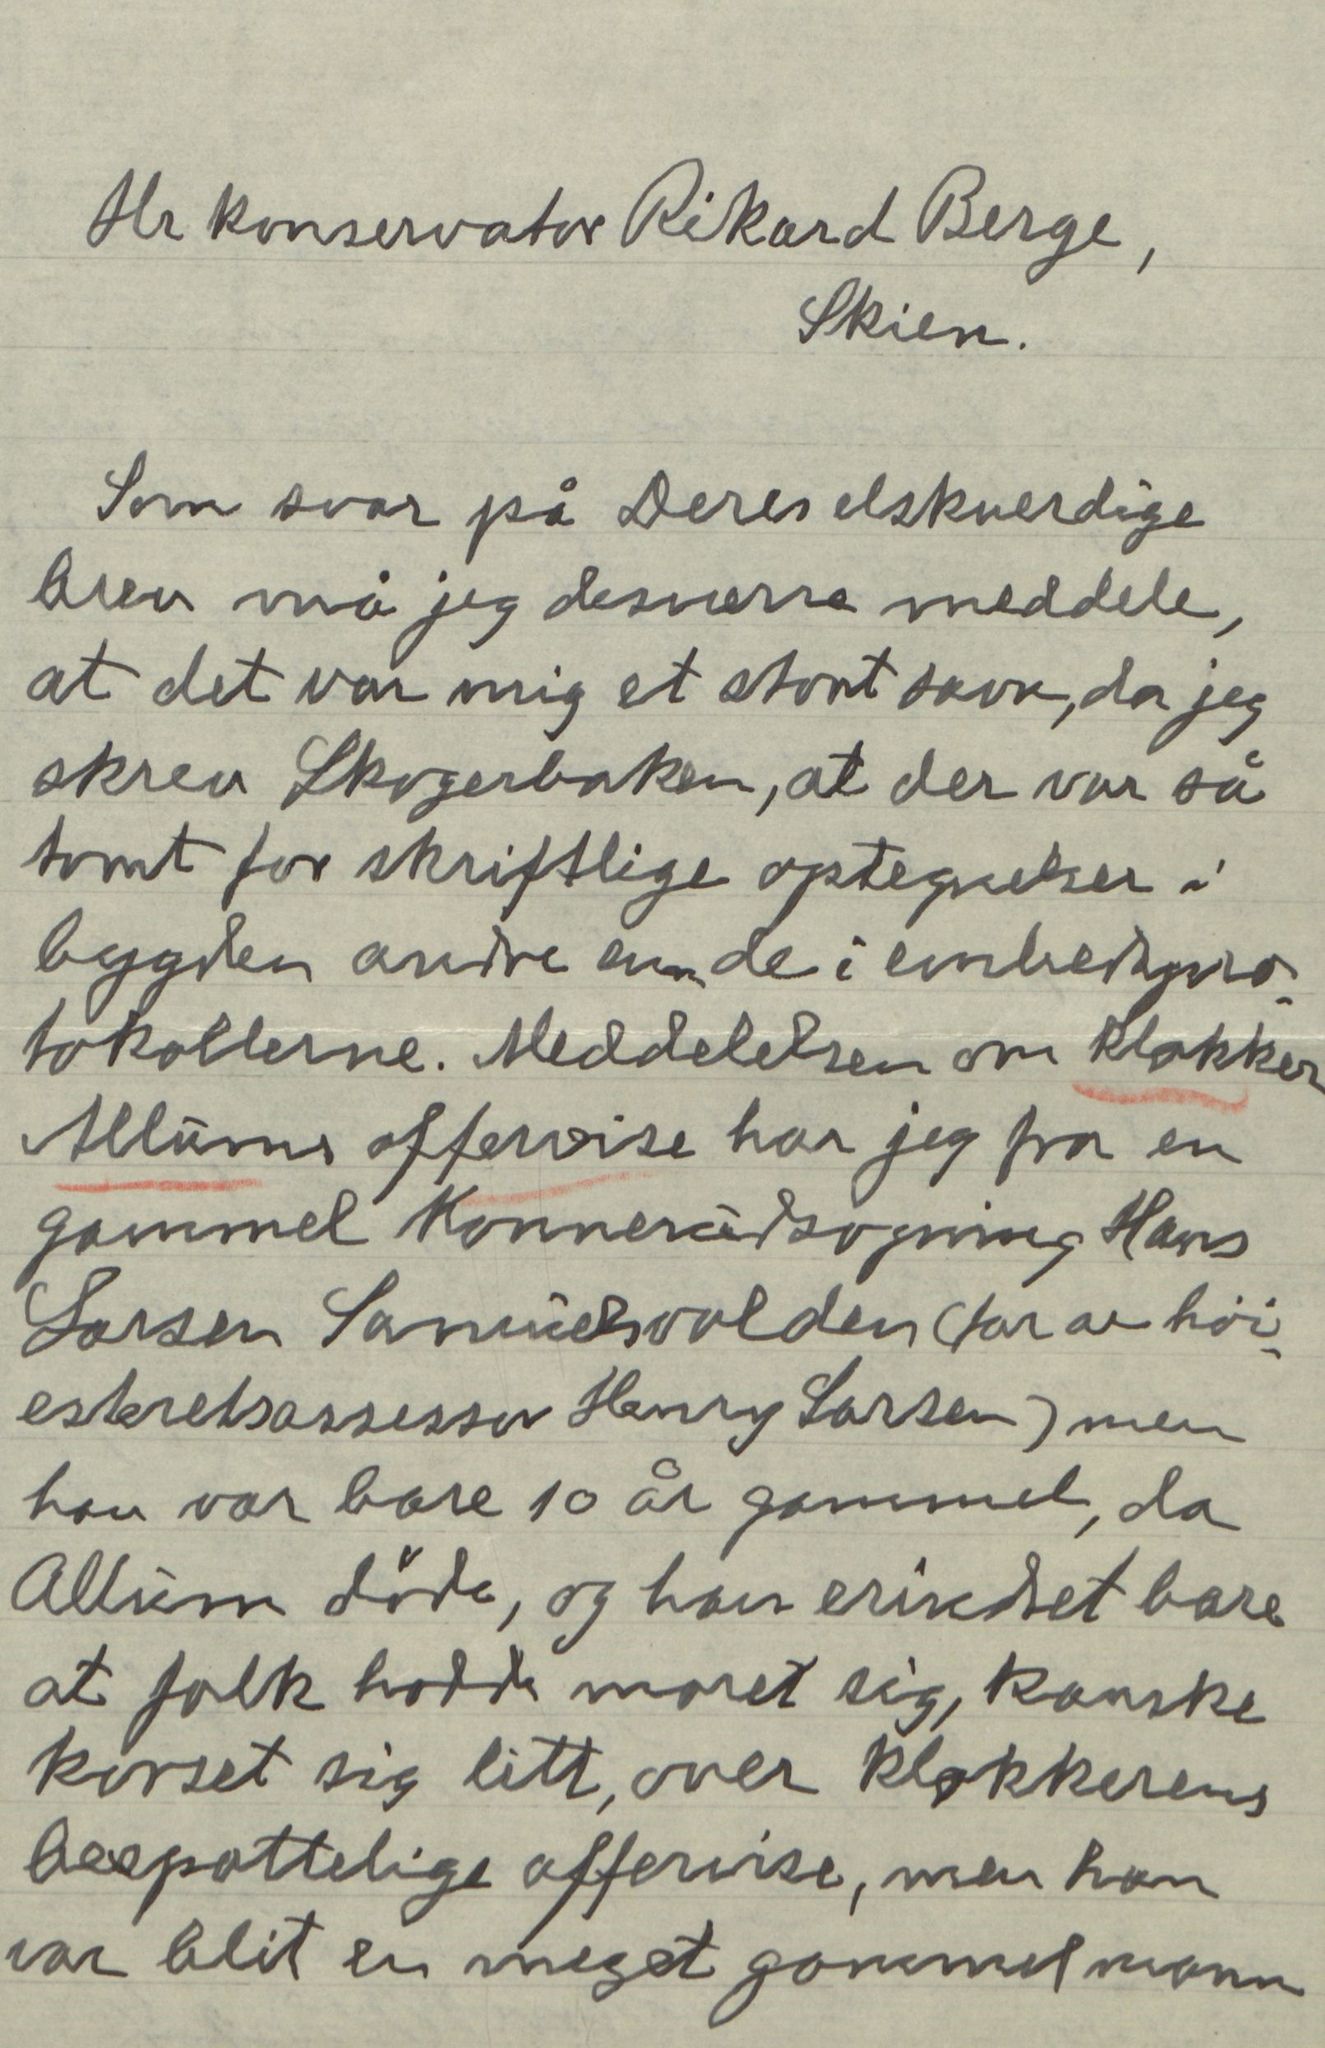 Hr konservator Rikard Berge,
Skien.
Som svar på Deres elskverdige
brev må jeg desverre meddele,
at det var mig et stort savn, da jeg
skrev Skogerboken, at der var så
tomt for skriftlige optegnelser i
bygden andre enn de i embedspro-
tokollerne. Meddelelsen om klokker
Allums offervise har jeg fra en
gammel Konnerudsogning Hans
Larsen Samuelsvolden (far av höi-
esteretsassessor Henry Larsen) men
han var bare 10 år gammel, da
Allum döde, og han erindret bare
at folk hadde moret sig, kanske
korset sig litt, over klokkerens
bespottelige offervise, men han
var blit en meget gammel mann